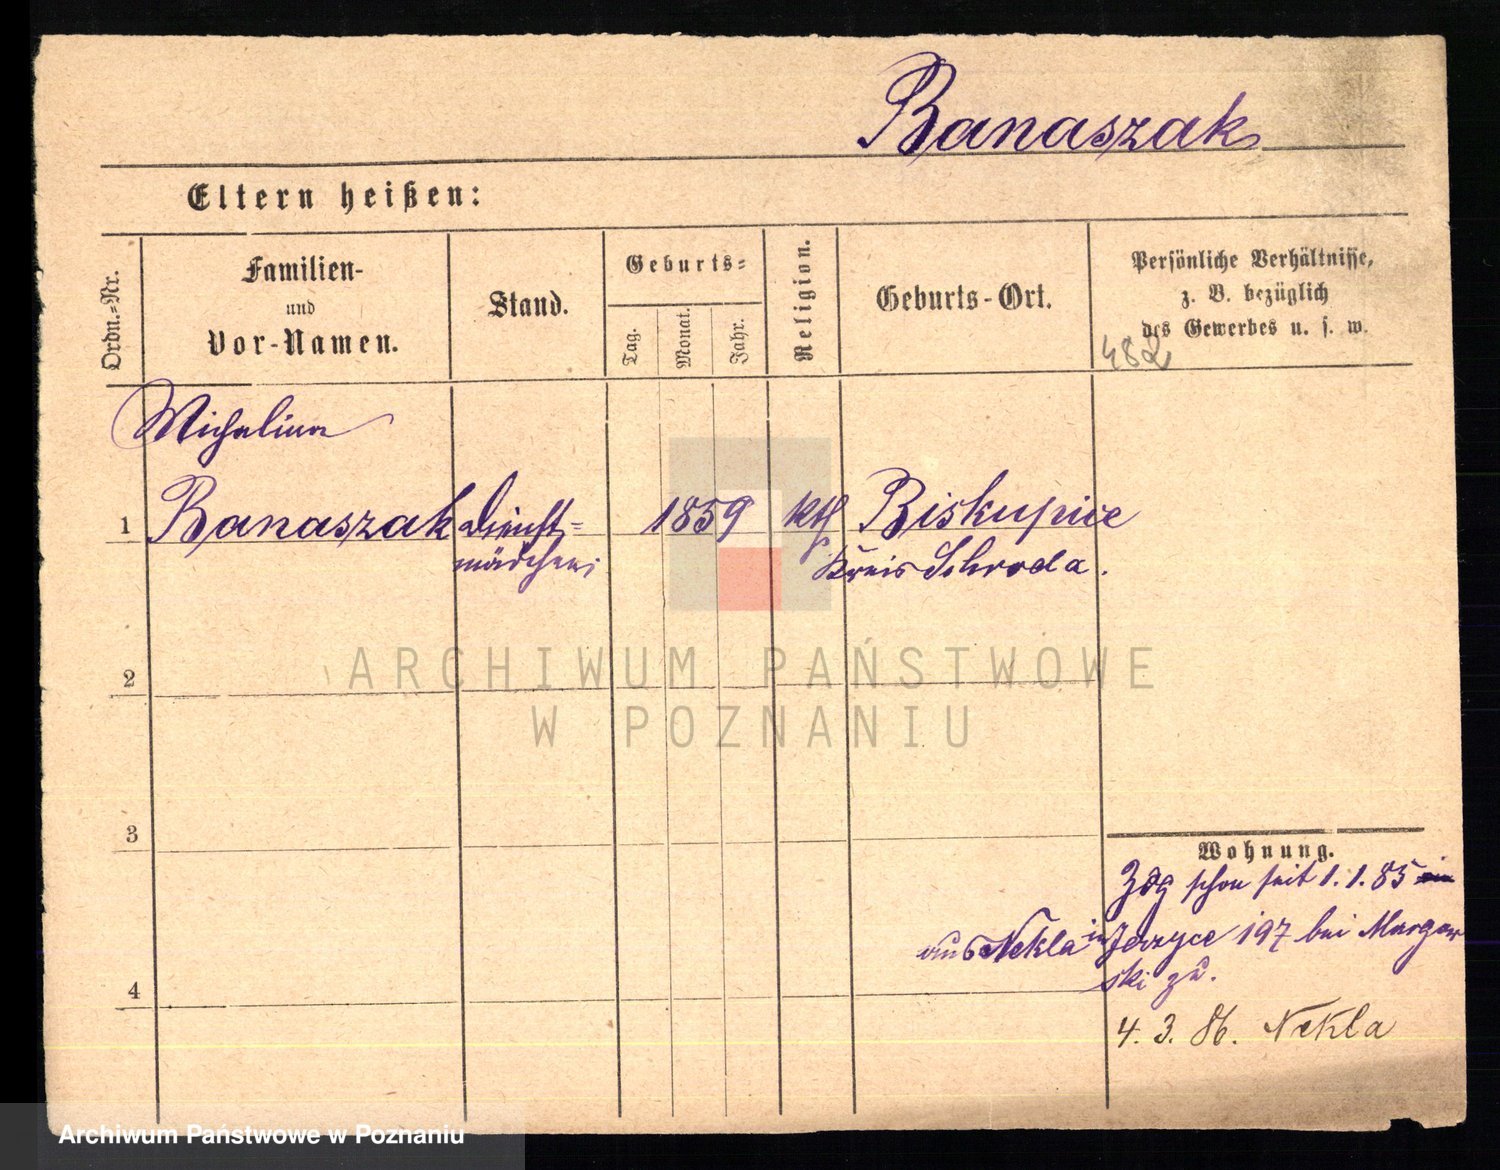 Banaszak
Eltern heißen:
Ordn.-Nr.
Familien-
und
Vor-Namen.
Stand.
Geburts=
Tag.
Monat.
Jahr.
Religion.
Geburts-Ort.
Persönliche Verhältnisse,
z. B. bezüglich
des Gewerbes u. s. w.
482
Michalina
1 Banaszak Dienst= 1859 kth Biskupice
mädchen Kreis Schroda.
ARCHIWUM PAŃSTWOWE
W POZNANIU
2
3
Wohnung.
Zdg schon seit 1.1.85
aus Nekla in Jerzyce 197 bei
ski zu.
4
4. 3. 86. Nekla
Archiwum Państwowe w Poznaniu